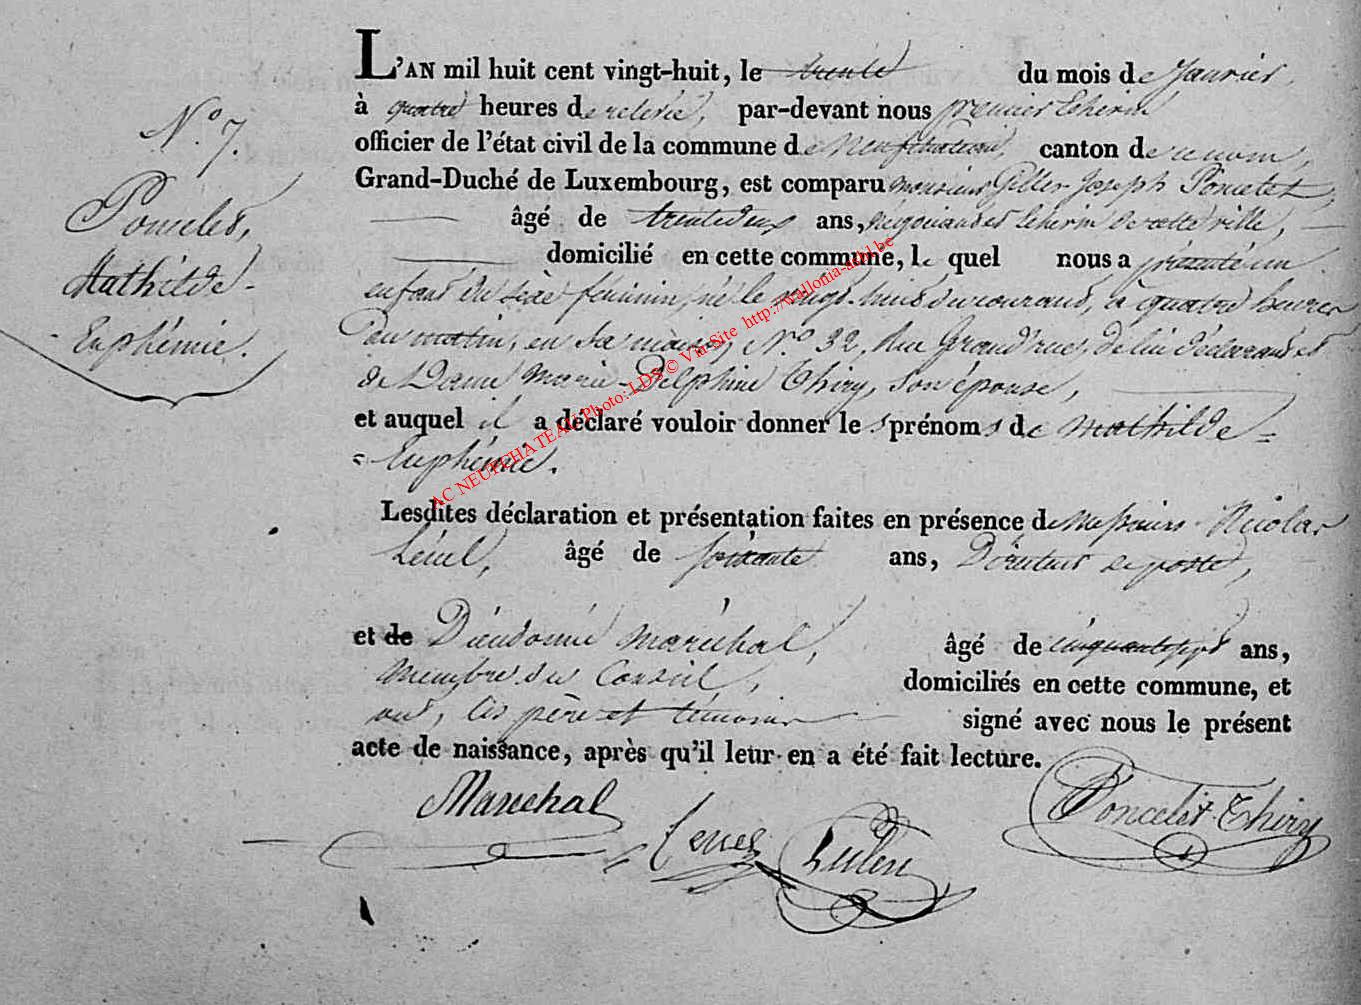 L'AN mil huit cent vingt-huit, le trente du mois de Janvier,
à quatre heures de relevée, par-devant nous premier Echevin
officier de l'état civil de la commune de Neufchateau, canton de ce nom,
Grand-Duché de Luxembourg, est comparu monsieur Gilles-Joseph Poncelet,
âgé de trente deux ans, négociant et Echevin de cette ville,
domicilié en cette commune, le quel nous a présenté un
enfant du sexe féminin, né le vingt-huit du courant, à quatre heures
du matin, en sa maison, N.o 32, Rue Grand'rue, de lui déclarant et
de Dame Marie-Delphine Thiry, son épouse,
et auquel il a déclaré vouloir donner les prénoms de Mathilde=
=Euphémie.
Lesdites déclaration et présentation faites en présence de Messieurs Nicolas
âgé de soixante ans, Directeur de poste,
et de Dieudonné Maréchal, âgé de cinquante sept ans,
membre du Conseil, domiciliés en cette commune, et
ont, les père et témoins signé avec nous le présent
acte de naissance, après qu'il leur en a été fait lecture.
Maréchal
Poncelet-Thiry
N.o 7.
Poncelet,
Mathilde-
Euphémie.
AC NEUFCHATEAU Photo: LDS © Via Site http://wallonia-asbl.be